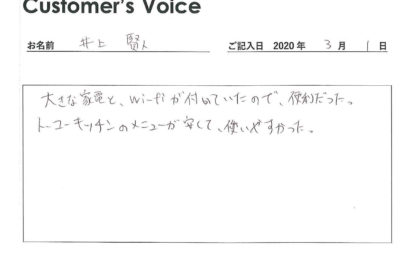 Customer's Voice
お名前 井上 賢人 ご記入日 2020 年 3 月 1 日
大きな家電と、Wi-fiが付いていたので、便利だった。
トーコーキッチンのメニューが安くて、使いやすかった。